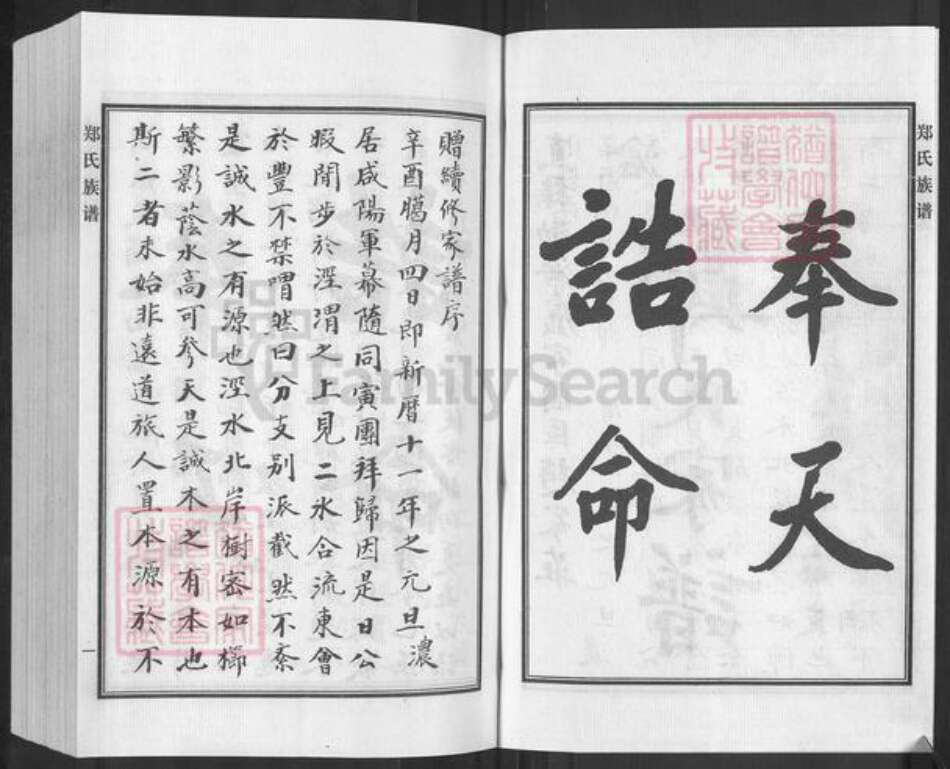 郑氏族谱
奉天
誥命
贈續修家譜序
辛酉臘月四日即新曆十一年之元旦濃
居咸陽軍幕隨同寅團拜歸因是日公
暇閒步於涇渭之上見二水合流東會
於豐不禁喟然曰分支别派截然不紊
是誠水之有源也涇水北岸樹密如櫛
繁影蔭水高可參天是誠木之有本也
斯二者未始非遠道旅人置本源於不
郑氏族谱
一
FamilySearch